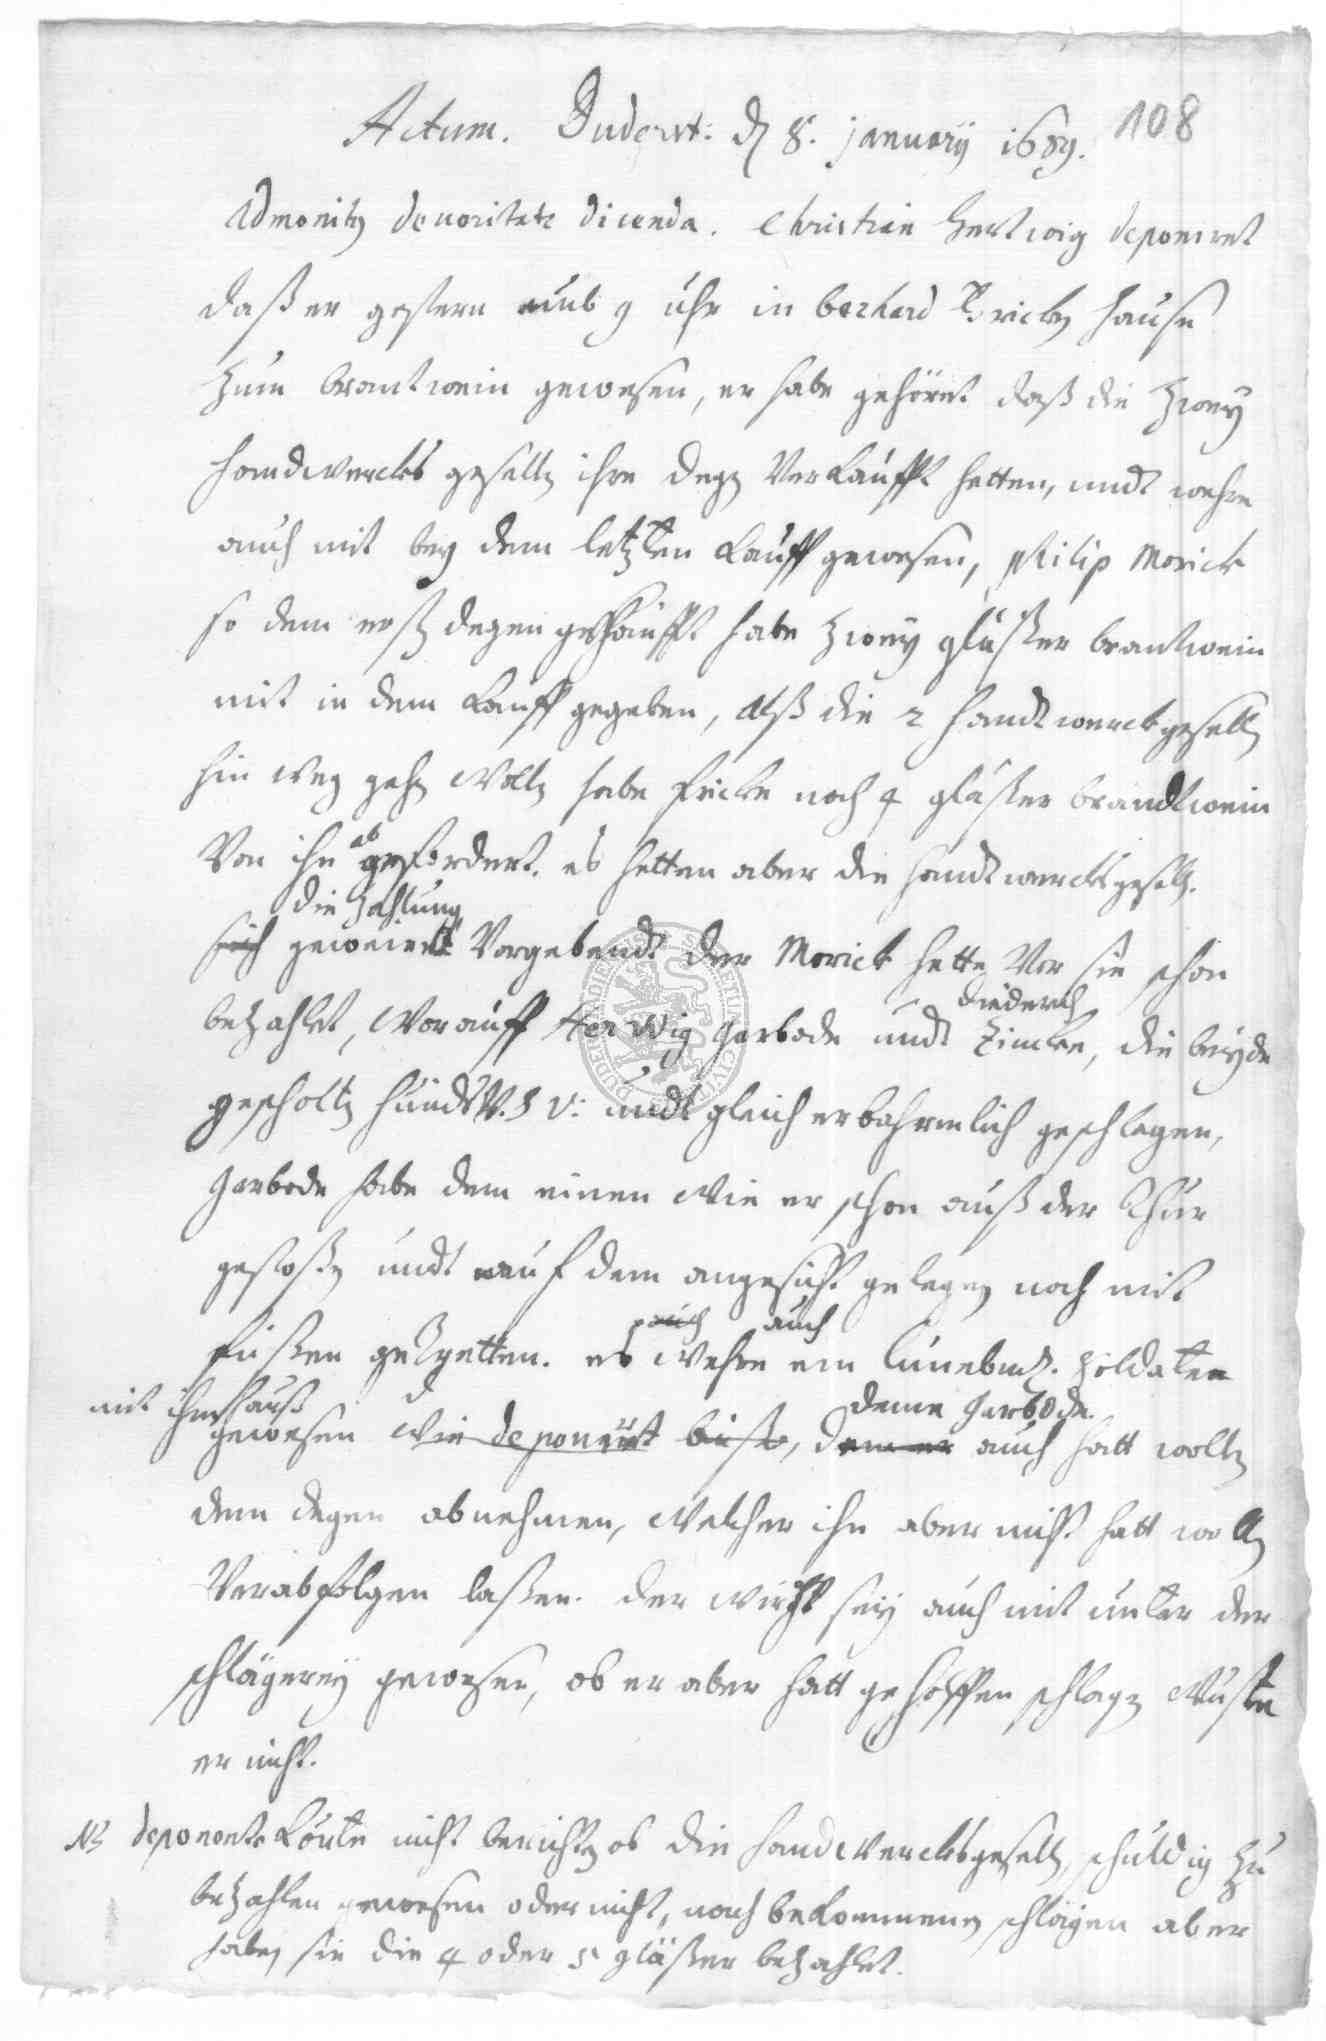 108
Actum. Duderst: d 8. january 1689.
Admonitus de veritate dicenda. Christian Hertwig deponiret
daß er gestern umb 9 uhr in Gerhard Fricken Hause
zum brantwein gewesen, er habe gehöret daß die zwey
handwercks gesellen ihre degen verkaufft hetten, undt wehre
auch mit bey dem letzten kauff gewesen, Philip Morick
so dem ersten degen gekaufft habe zwey gläßer brantwein
mit in dem kauff gegeben, alß die 2 handtwerckgesellen
hin weg gehen wolten habe Fricke noch 4 gläßer brandtwein
von ihn ab gefordert. es hetten aber die handtwercksgesellen.
die zahlung
sich geweirt vorgebendt der Morick hette vor sie schon
diederich
bezahlet, worauff Herwig Garbode undt Zincke, die beyde
gescholten hundtv. S v: undt gleich erbahrmlich geschlagen,
Garbode habe dem einen wie er schon auß der Thür
gestoßen undt auf dem angesicht gelegen noch mit
auch auch
füßen getretten. es wehre ein Lüneburg. Soldaten
mit ihm hauß deme Garbode.
gewesen wie deponirt , dem er auch hatt wollen
dem degen abnehmen, welcher ihn aber nicht hatt wollen
verabfolgen laßen. der wirht sey auch mit unter der
schlägerey gewesen, ob er aber hatt geholffen schlagen wuste
er nicht.
NB deponente könte nicht berichten ob die handwercksgesellen, schuldig zu
bezahlen gewesen oder nicht, nach bekommenen schlägen aber
haben sie die 4 oder 5 gläßer bezahlet.